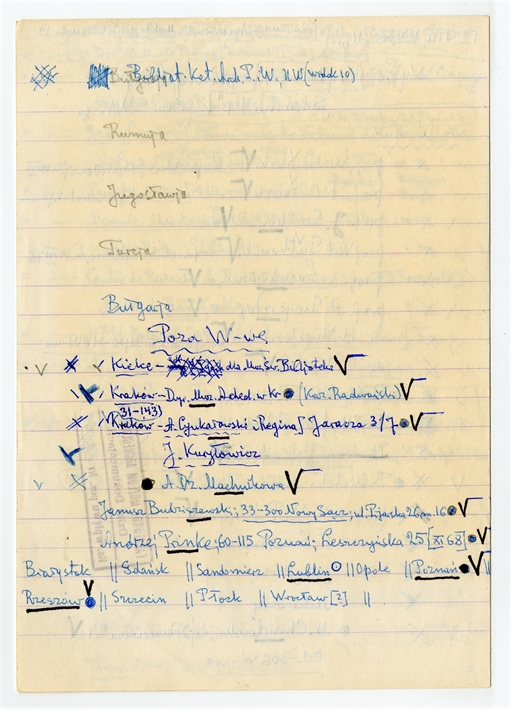 Bibliot. Kat. Arch. P. W., N W (wródk 10)
Rumunja
Jugosławja
Turcja
Bułgarja
Poza W-wą
√ Kielce - dla Bibljoteki √
Kraków - Dyr. Muz. Arheol. w Kr (Kaz. Radwański) √
31-143
Kraków - A. i Regina Jaracza 3/7 √
J. Kuryłowicz
A. Dz. Machnikowa √
Janusz Budziszewski; 33-300 Nowy Sącz; ul. Pijarska 26 m. 16 √
Andrzej Prinke; 60-115 Poznań; Leszczyńska 25 [XI 68] √
Białystok || Gdańsk || Sandomierz || Lublin || Opole || Poznań √ ||
Rzeszów √ || Szczecin || Płock || Wrocław [2] ||